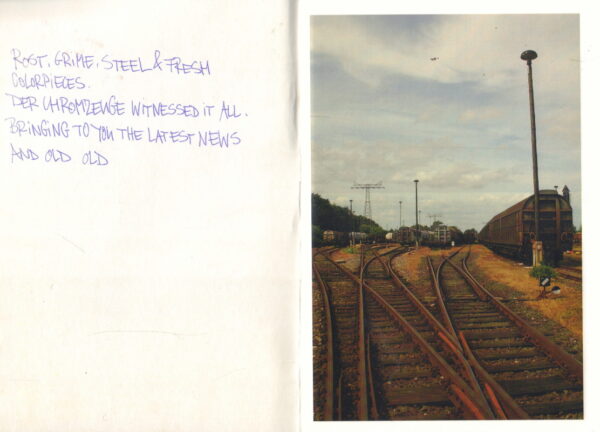 ROST, GRIME, STEEL & FRESH
COLORPIECES.
DER CHROMZEUGE WITNESSED IT ALL.
BRINGING TO YOU THE LATEST NEWS
AND OLD OLD